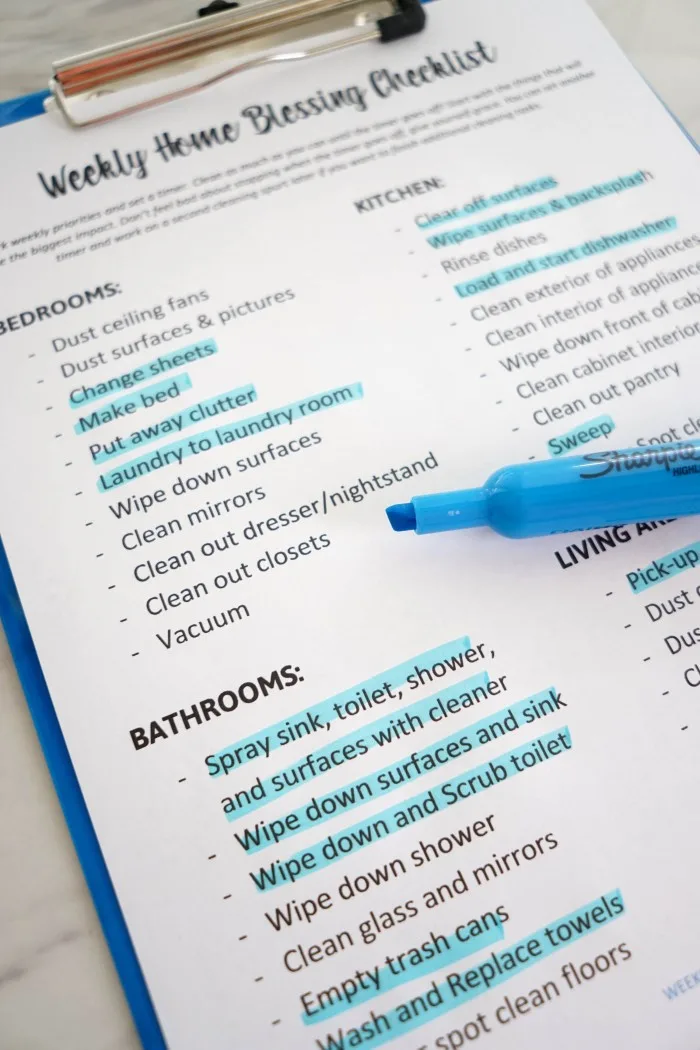 Weekly Home Blessing Checklist
weekly priorities and set a timer. Clean as much as you can until the timer goes off! Start with the things that will
the biggest impact. Don't feel bad about stopping when the timer goes off, give yourself grace. You can set another
timer and work on a second cleaning sport later if you want to finish additional cleaning tasks.
BEDROOMS:
- Dust ceiling fans
- Dust surfaces & pictures
- Change sheets
- Make bed
- Put away clutter
- Laundry to laundry room
- Wipe down surfaces
- Clean mirrors
- Clean out dresser/nightstand
- Clean out closets
- Vacuum
BATHROOMS:
- Spray sink, toilet, shower,
and surfaces with cleaner
- Wipe down surfaces and sink
- Wipe down and Scrub toilet
- Wipe down shower
- Clean glass and mirrors
- Empty trash cans
- Wash and Replace towels
spot clean floors
KITCHEN:
- Clear off surfaces
- Wipe surfaces & backsplash
- Rinse dishes
- Load and start dishwasher
- Clean exterior of appliances
- Clean interior of appliance
- Wipe down front of cab
- Clean cabinet interior
- Clean out pantry
- Sweep
Spot cle
Sharpie
HIGHL
LIVING ARE
- Pick-up
- Dust
- Dus
- Cl
-
WEEK